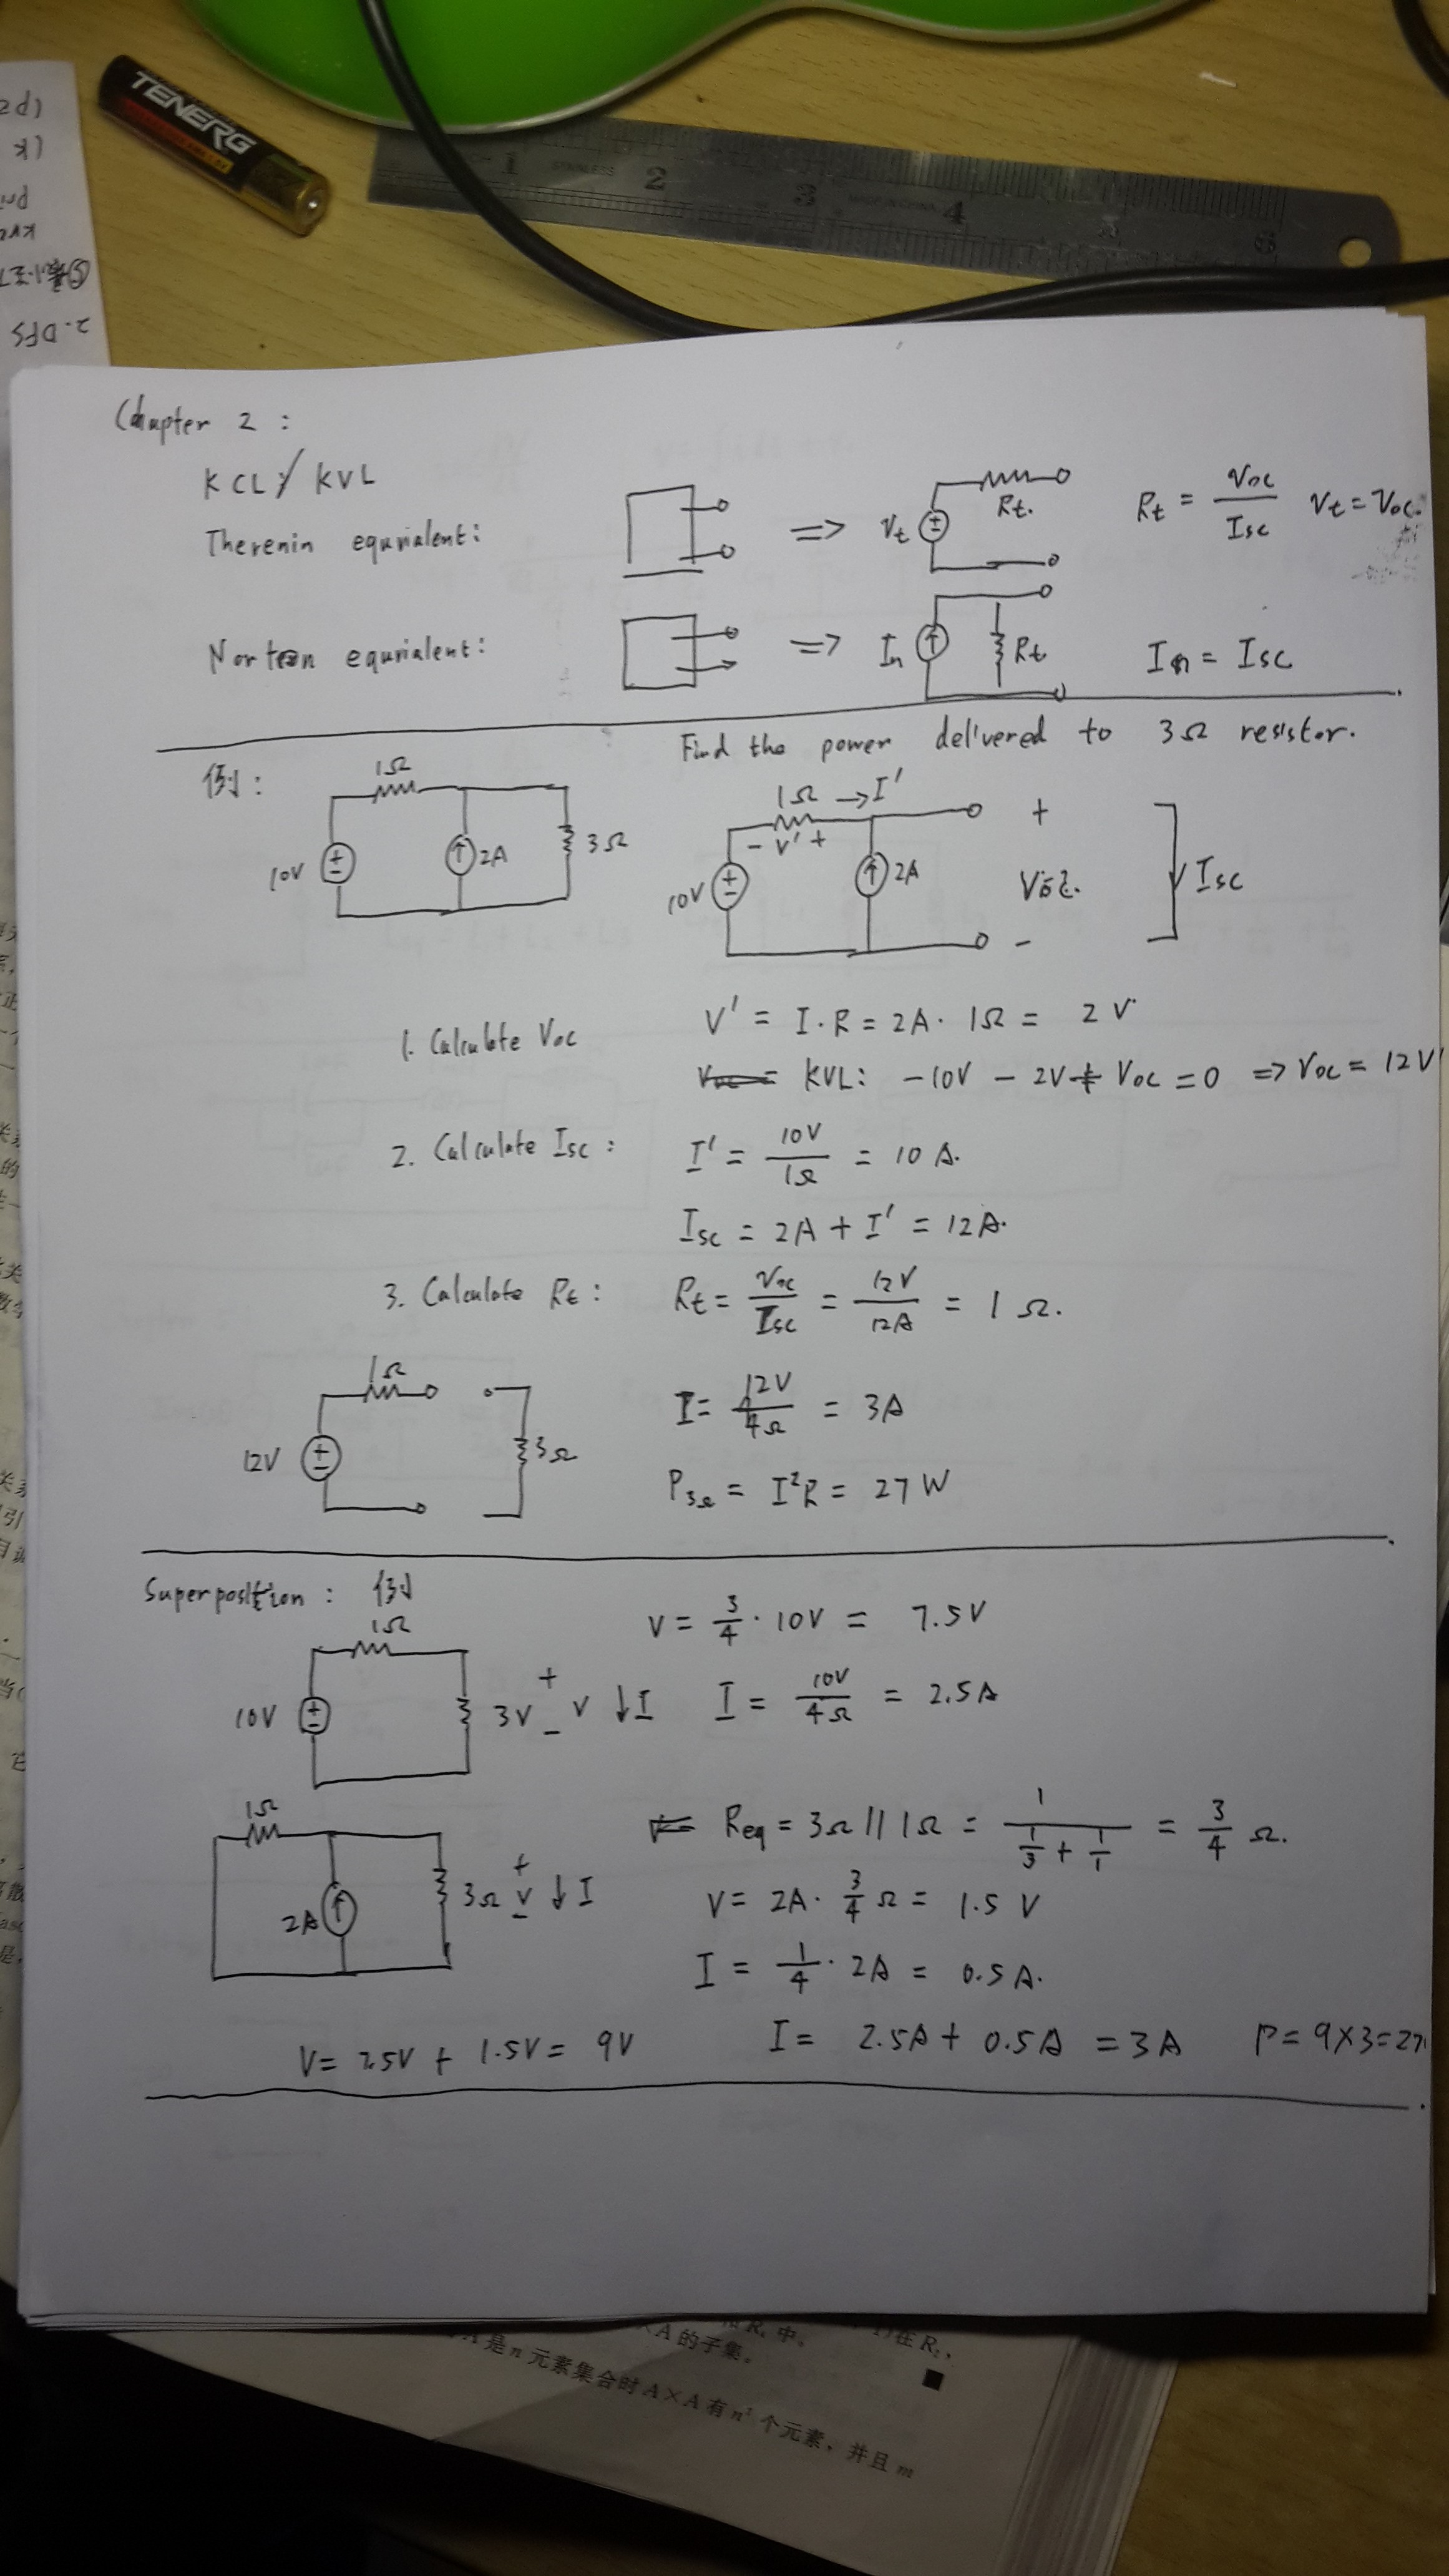 TENERG
1 2 3 4 5 6
STAINLESS
MADE IN CHINA
2. DFS
Chapter 2 :
KCL / KVL
Therenin equivalent: => Vt Rt. Rt = Voc / Isc Vt = Voc.
Norton equivalent: => In Rt In = Isc
Find the power delivered to 3Ω resistor.
例: 1Ω 10V 2A 3Ω
1Ω → I' - V' + 10V 2A + Voc. - Isc
1. Calculate Voc V' = I · R = 2A · 1Ω = 2V
KVL: -10V - 2V + Voc = 0 => Voc = 12V
2. Calculate Isc : I' = 10V / 1Ω = 10 A.
Isc = 2A + I' = 12A.
3. Calculate Rt : Rt = Voc / Isc = 12V / 12A = 1 Ω.
1Ω 12V 3Ω I = 12V / 4Ω = 3A
P3Ω = I²R = 27 W
Superposition : 例
1Ω 10V 3V + V - ↓ I
V = 3/4 · 10V = 7.5V
I = 10V / 4Ω = 2.5A
1Ω 2A 3Ω + V - ↓ I
Req = 3Ω // 1Ω = 1 / (1/3 + 1/1) = 3/4 Ω.
V = 2A · 3/4 Ω = 1.5 V
I = 1/4 · 2A = 0.5A.
V = 7.5V + 1.5V = 9V I = 2.5A + 0.5A = 3A P = 9×3=27
×A的子集。
A是n元素集合时A×A有n²个元素，并且m